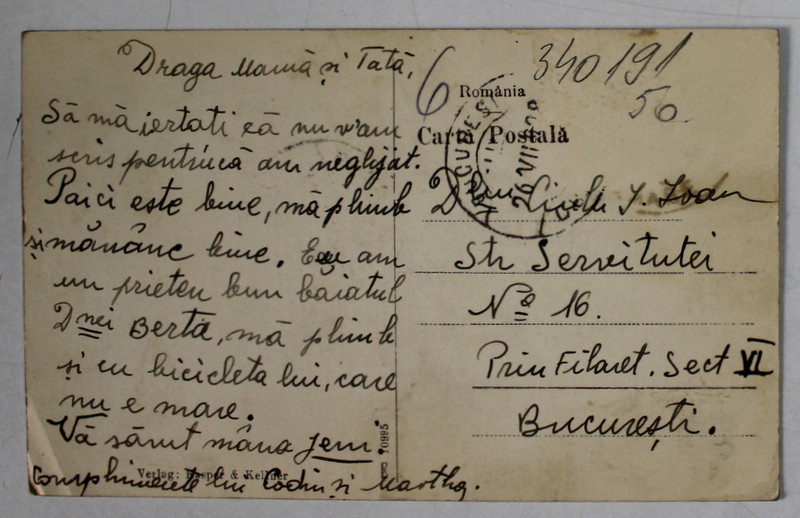 Draga Mamă și Tată,
Să mă iertati că nu v'am
scris pentrucă am neglijat.
Paici este bine, mă plimb
și mănânc bine. Eu am
un prieten bun băiatul
Dnei Berta, mă plimb
și cu bicicleta lui, care
nu e mare.
Vă sărut mâna Jeni.
Complimente lui Codin și Martha.
Verlag: & Kellner
0995
6
340191
50
România
Carta Poștală
26 VII
J. Ioan
Str Servitutei
No 16.
Prin Filaret. Sect VI
București.